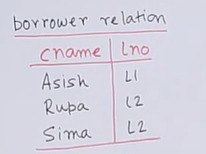 borrower relation
cname lno
Asish L1
Rupa L2
Sima L2